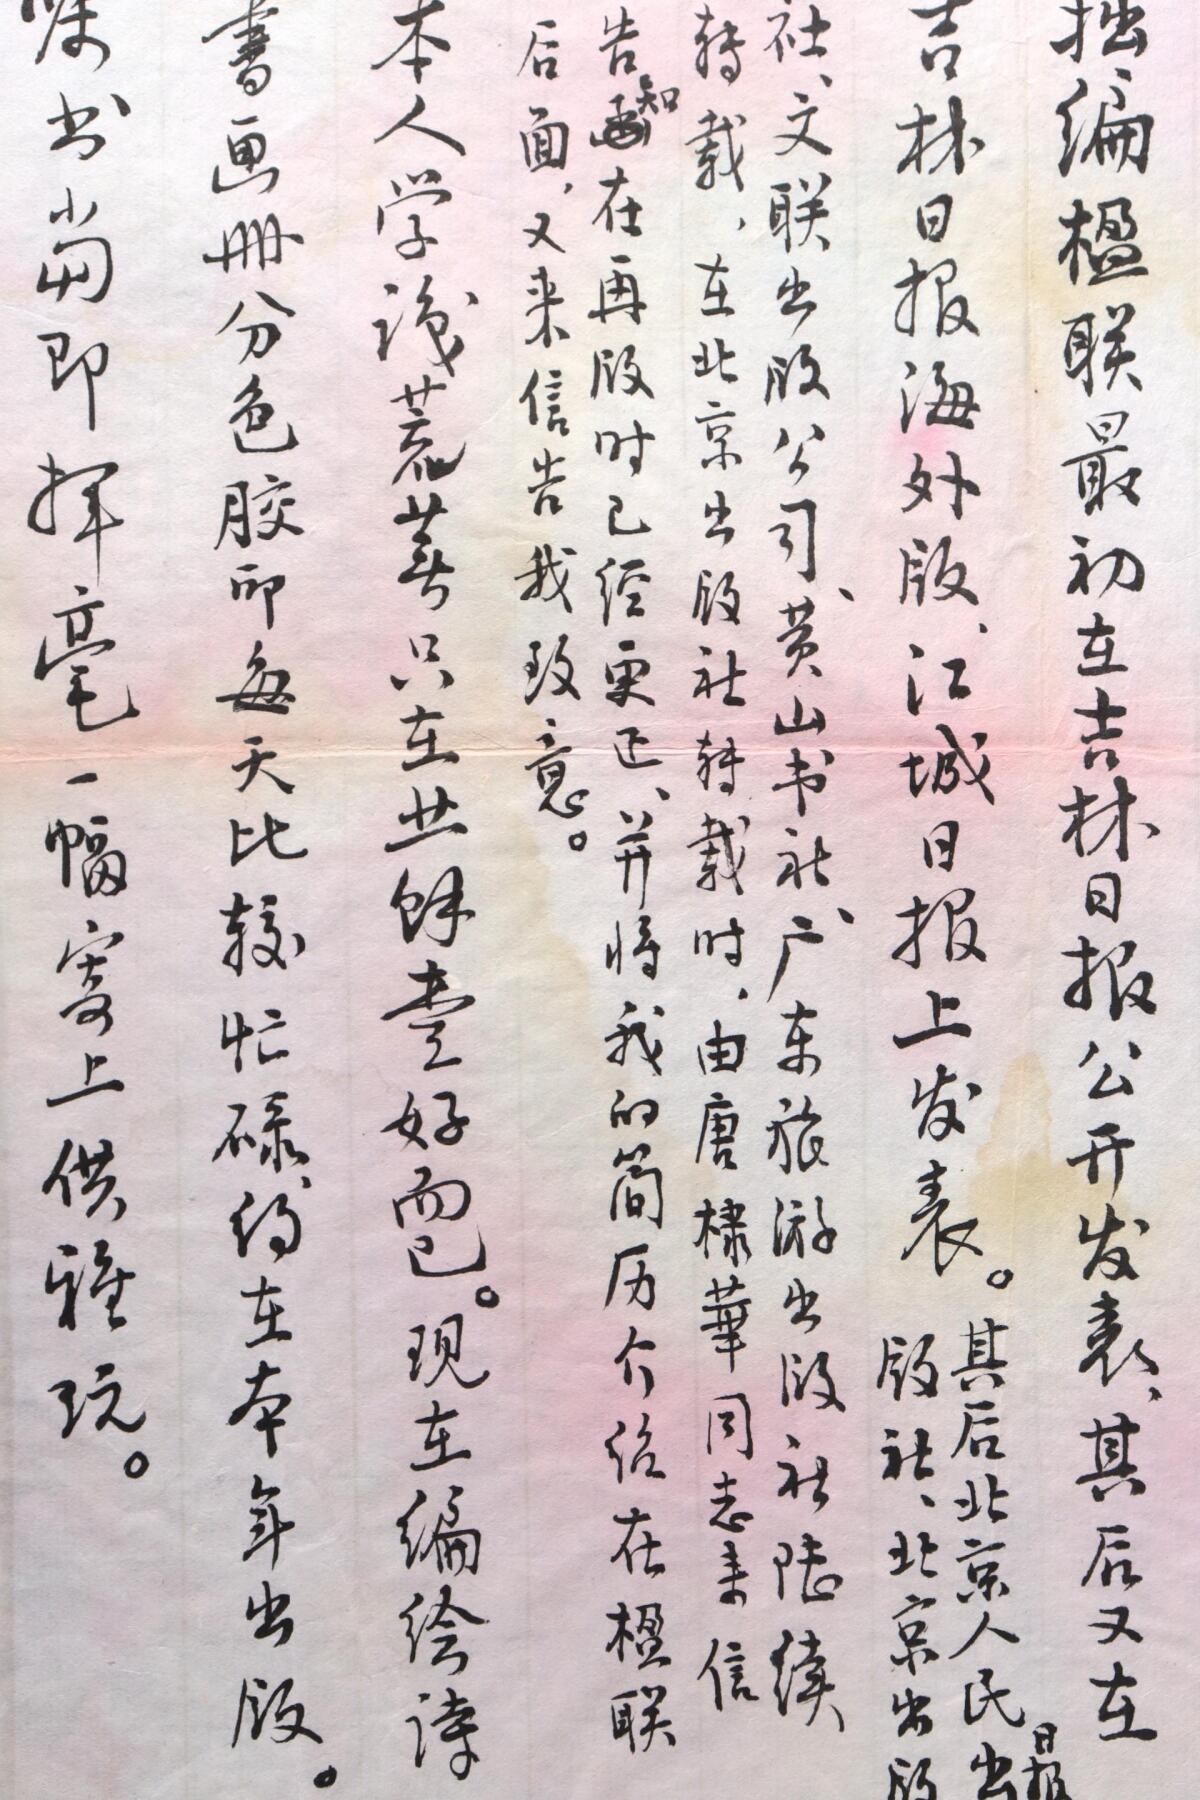 拙编楹联最初在吉林日报公开发表、其后又在
吉林日报海外版、江城日报上发表。
其后北京人民日报出
版社、北京出版
社、文联出版公司、黄山书社、广东旅游出版社陆续
转载，在北京出版社转载时，由唐棣華同志来信
告知在再版时已经更正、并将我的简历介绍在楹联
后面，又来信告我致意。
本人学浅荒芜只在业馀爱好而已。现在编绘诗
書画册分色胶印每天比较忙碌、约在本年年出版。
嘱书尚即挥毫一幅寄上供雅玩。